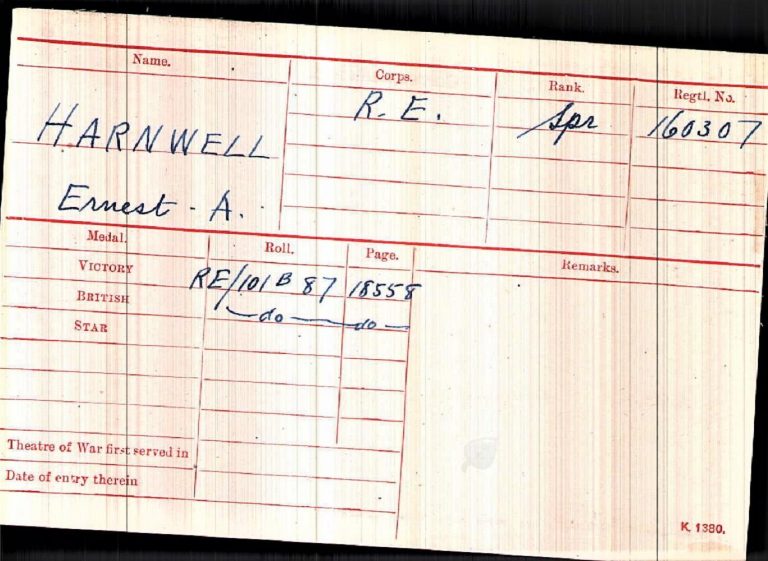 Name. Corps. Rank. Regtl. No.
HARNWELL R. E. Spr 160307
Ernest - A.
Medal. Roll. Page. Remarks.
VICTORY RE/101 B 87 18558
BRITISH do do
STAR
Theatre of War first served in
Date of entry therein
K. 1380.